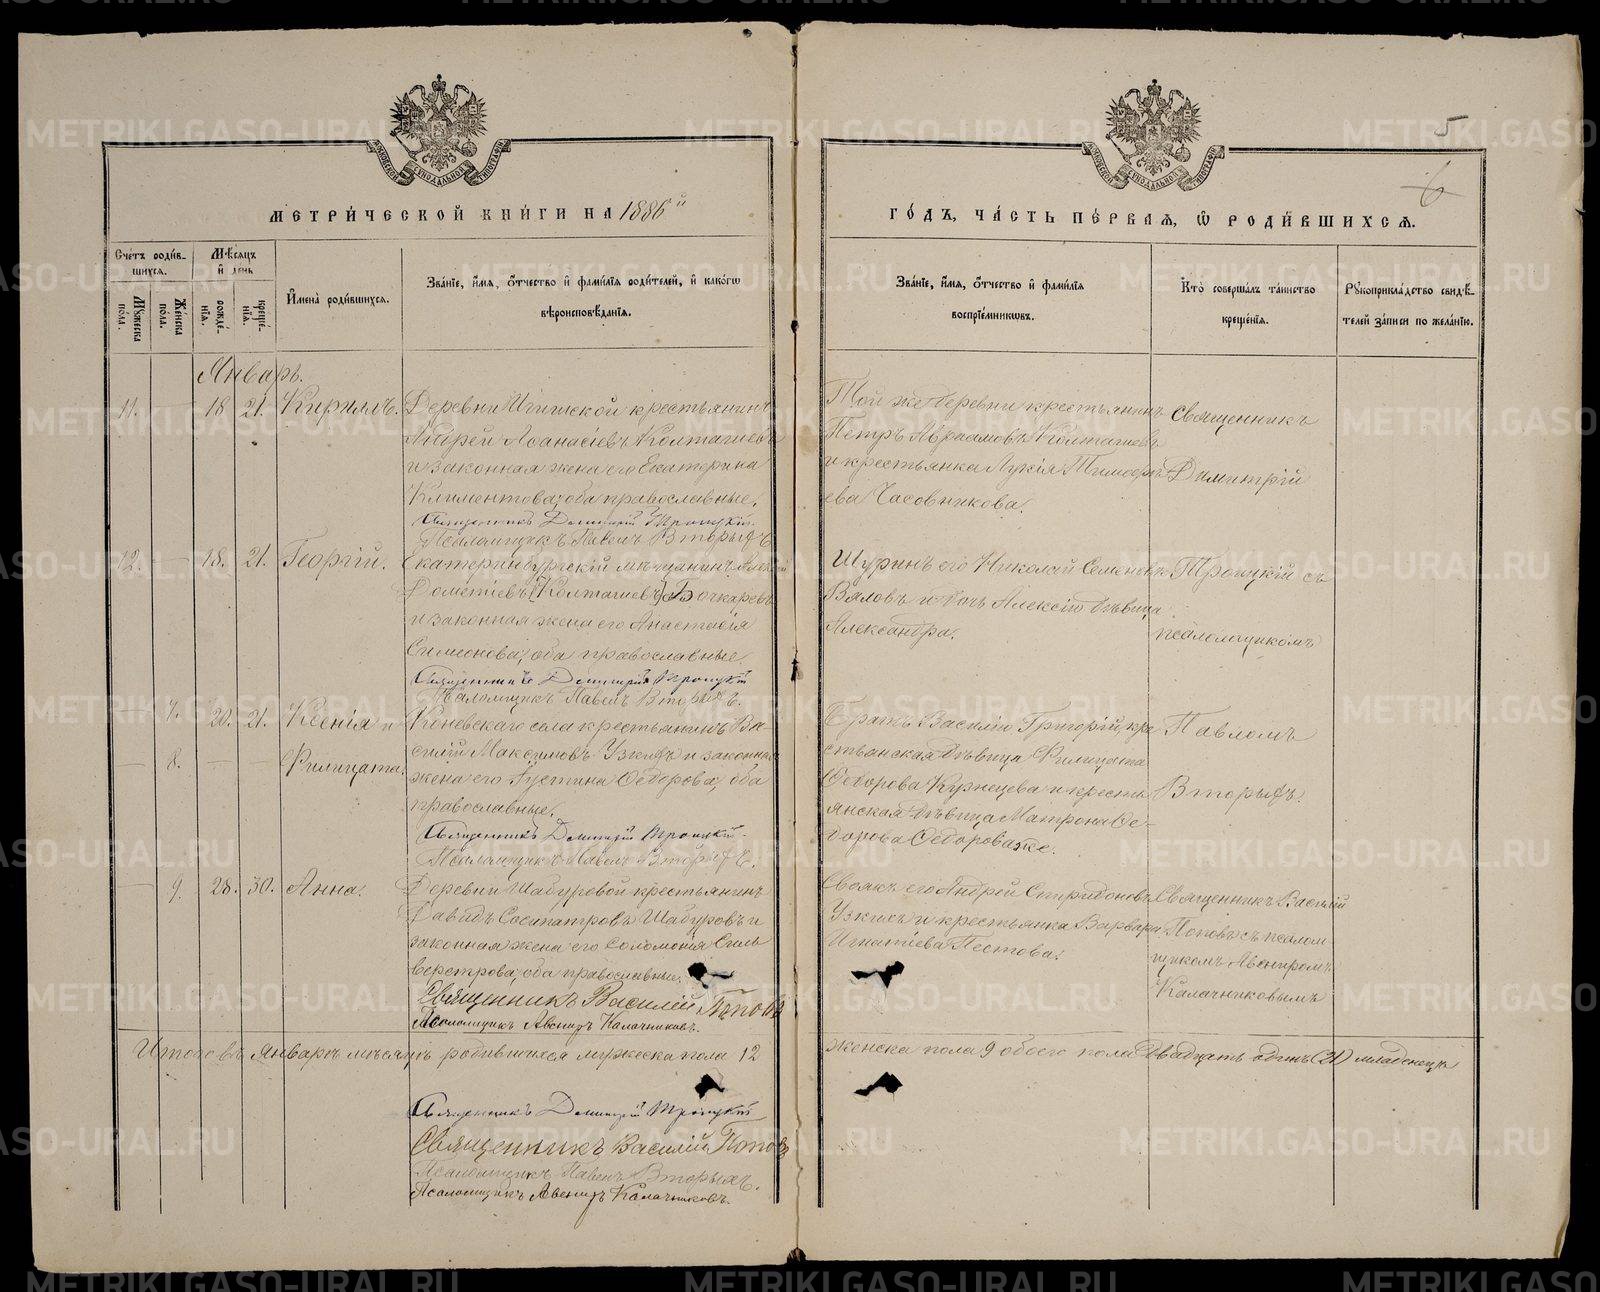 5
6
МЕТРИ́ЧЕСКОЙ КНИ́ГИ НА 1886й
ГО́ДЪ, ЧА́СТЬ ПЕ́РВАѦ, Ѽ РОДИ́ВШИХСѦ.
Сче́тъ роди́в-
шихся.
Мѣ́сяцъ
и҆ день
Мꙋжеска по́ла.
Же́нска по́ла.
рожде́-
нїѧ.
креще́-
нїѧ.
И҆мена̀ роди́вшихся.
Зва́нїе, и҆́мя, ѻ҆́тчество и҆ фами́лїя роди́телей, и҆ како́гѡ
вѣроисповѣ́данїя.
Зва́нїе, и҆́мя, ѻ҆́тчество и҆ фами́лїя
воспрїе́мникѡвъ.
Кто̀ соверша́лъ та́инство
креще́нїя.
Рꙋкоприкла́дство свидѣ́-
телей за́писи по жела́нїю.
Январь.
11. — 18 21. Кириллъ.
Деревни Игишской крестьянинъ
Андрей Аѳанасіевъ Колташевъ
и законная жена его Екатерина
Климентова, оба православные.
Священникъ Димитрій Троицкій.
Псаломщикъ Павелъ Вторыхъ
Той же деревни крестьянинъ
Петръ Авраамовъ Колташевъ
и крестьянка Лукія Тимоѳе-
ева Часовникова.
Священникъ
Димитрій
12. — 18. 21. Георгій.
Екатеринбургскій мѣщанинъ Алексій
Дометіевъ (Колташевъ) Бочкаревъ
и законная жена его Анастасія
Симеонова, оба православные
Священникъ Димитрій Троицкій
Псаломщикъ Павелъ Вторыхъ.
Шуринъ его Николай Семеновъ
Вяловъ и дочь Алексія дѣвица
Александра.
Троицкій съ
псаломщикомъ
— 7. 20. 21. Ксенія и
— 8. — — Филицата.
Коневскаго села крестьянинъ Ва-
силій Максимовъ Узкихъ и законная
жена его Іустина Ѳедорова, оба
православные.
Священникъ Димитрій Троицкій.
Псаломщикъ Павелъ Вторыхъ.
Братъ Василія Григорій, кре
стьянская дѣвица Филицата
Ѳедорова Кузнецова и кресть
янская дѣвица Матрона Ѳе-
дорова Ѳедорова же.
Павломъ
Вторыхъ.
— 9. 28. 30. Анна.
Деревни Шабуровой крестьянинъ
Давидъ Сосипатровъ Шабуровъ и
законная жена его Соломонія Силь
верстрова, оба православные.
Священникъ Василій Поповъ
Псаломщикъ Авениръ Калачниковъ.
Своякъ его Андрей Спиридоновъ
Узкихъ и крестьянка Варвара
Игнатіева Пестова.
Священникъ Василій
Поповъ съ псалом
щикомъ Авениромъ
Калачниковымъ
Итого въ Январѣ мѣсяцѣ родившихся мужеска пола 12
женска пола 9 обоего пола двадцать одинъ (21) младенецъ
Священникъ Димитрій Троицкій
Священникъ Василій Поповъ
Псаломщикъ Павелъ Вторыхъ.
Псаломщикъ Авениръ Калачниковъ.
METRIKI.GASO-URAL.RU